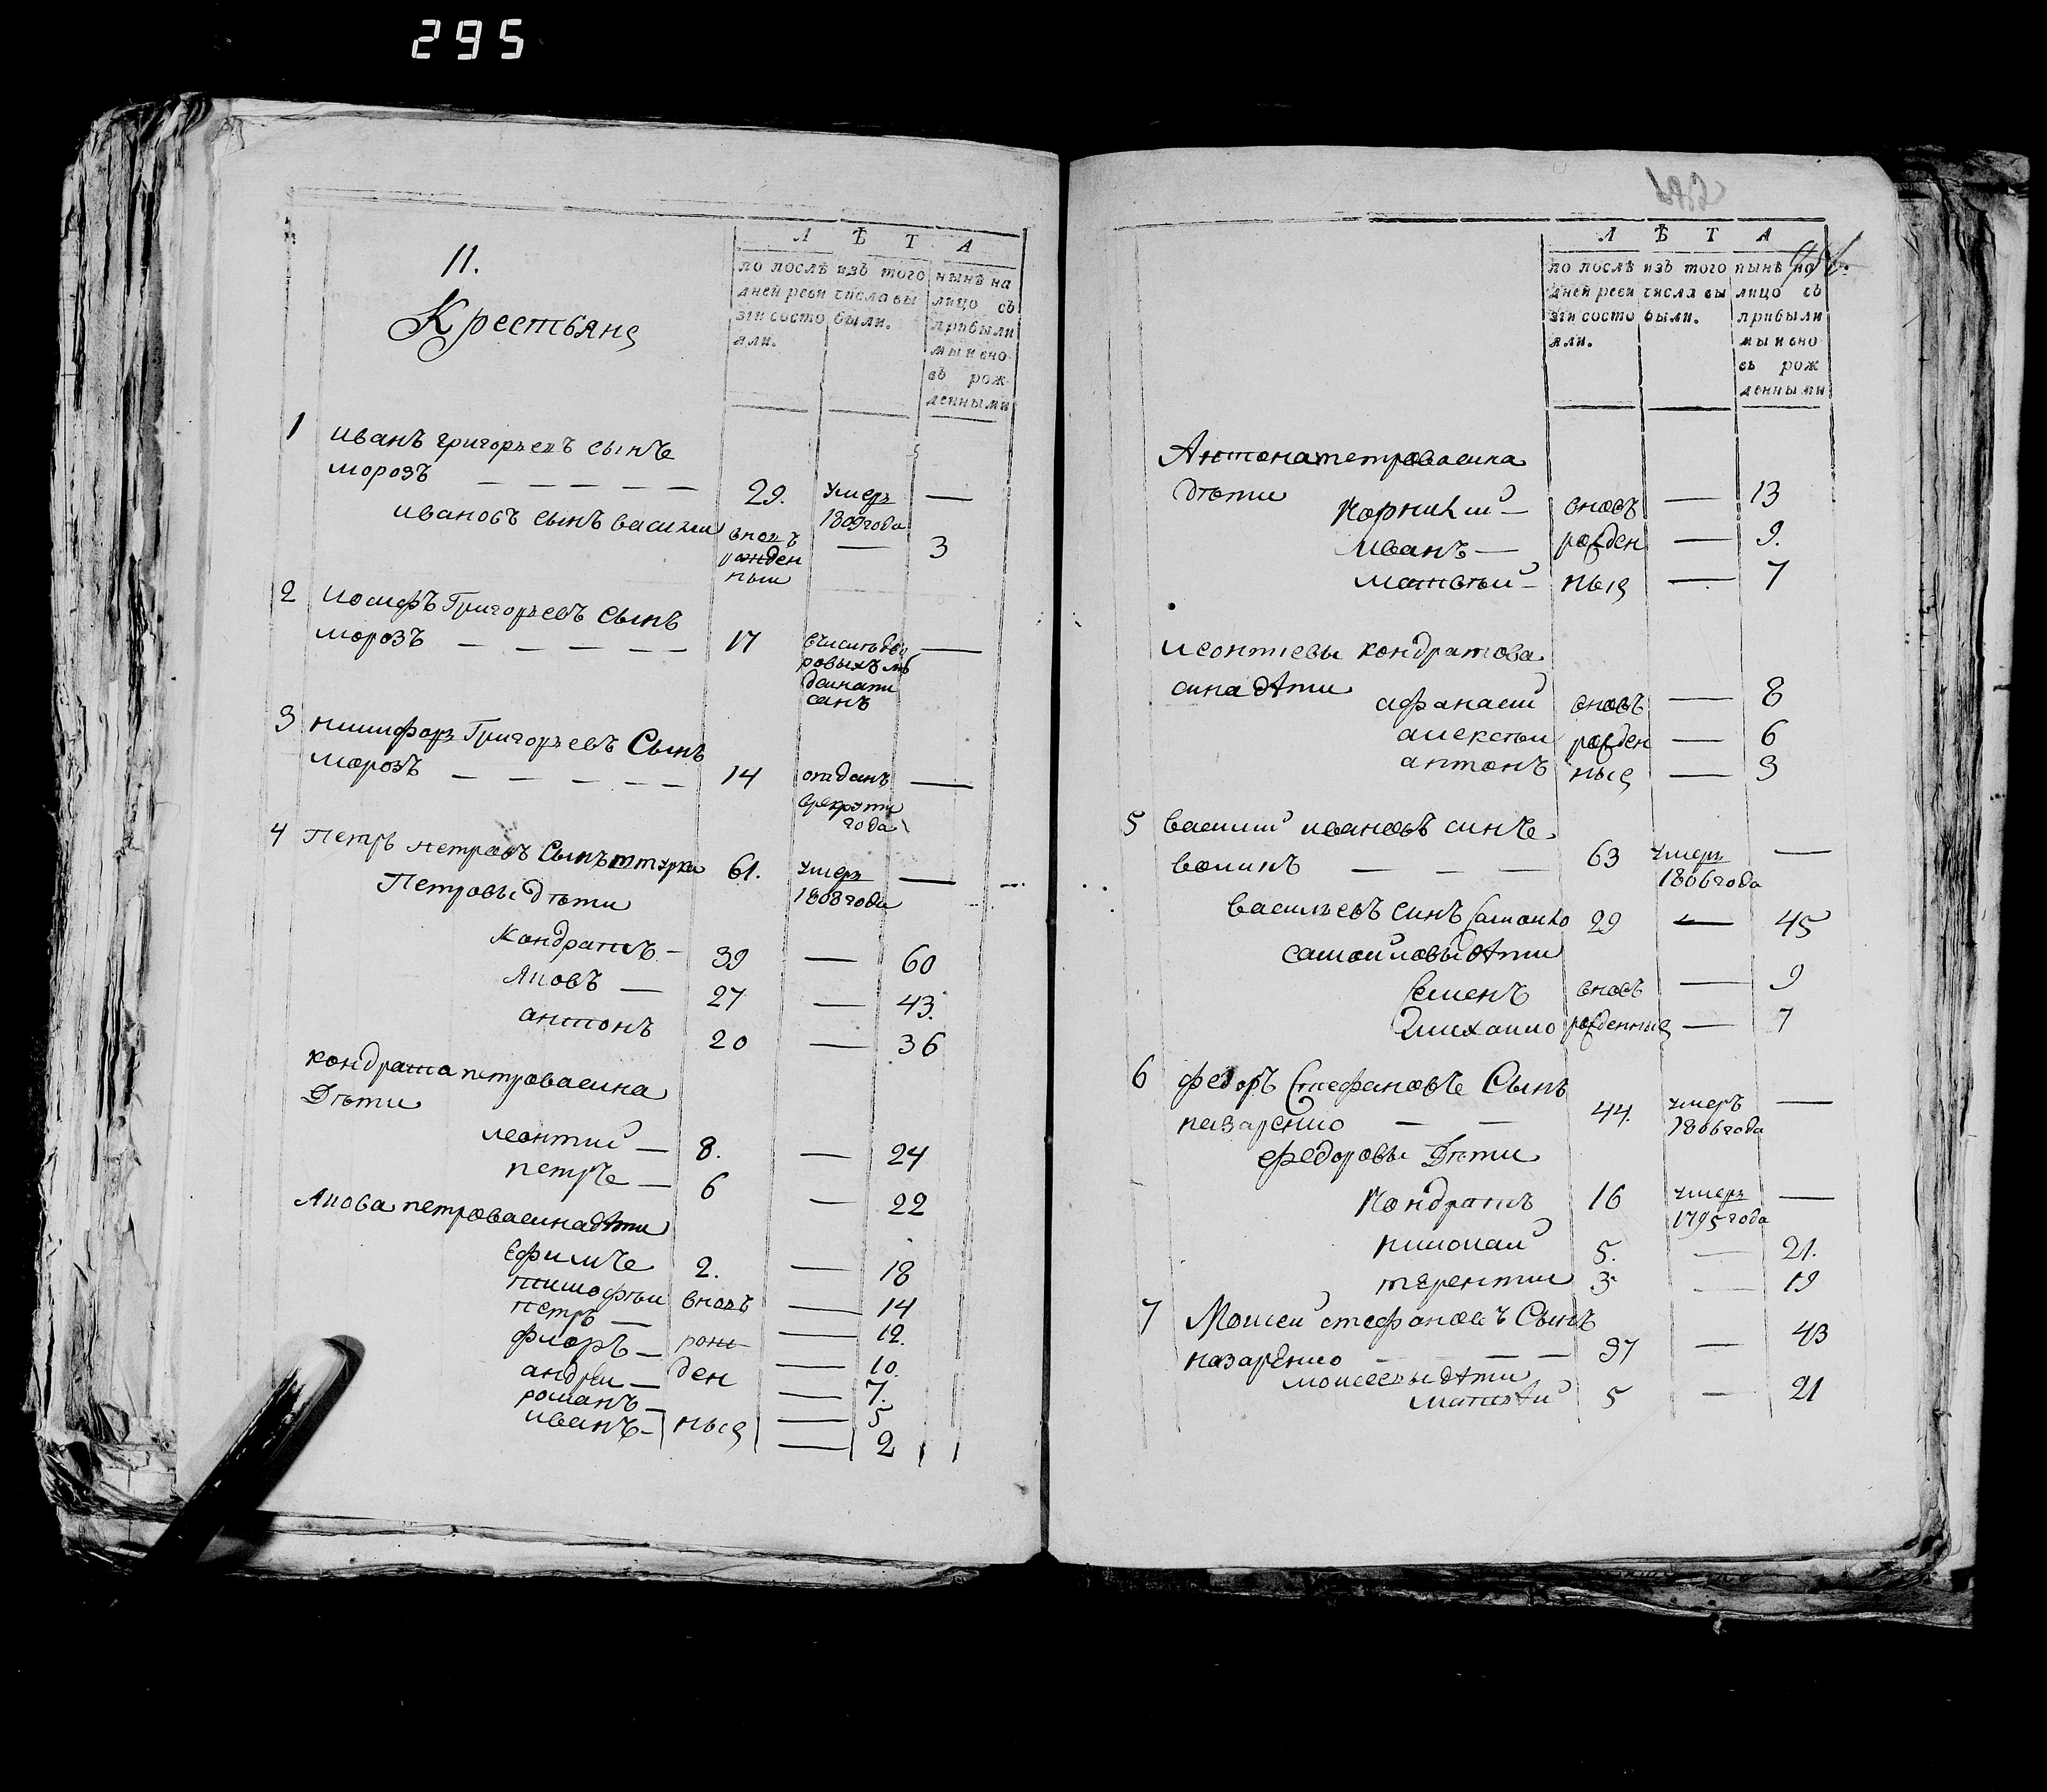 295
11.
Крестьяне
Л Ѣ Т А
по послѣ
дней реви
зіи состо
яли.
изъ того
числа вы
были.
нынѣ на
лицо съ
прибыли
ми и вно
въ рож
денными
1 иванъ григорьевъ сынъ
морозъ — — — — — 29. умеръ —
1809 года
ивановъ сынъ василии вновь — 3
рожден
ныи
2 иосифъ Григорьевъ Сынъ
морозъ — — — — — 17 —
3 никифоръ Григорьевъ Сынъ
морозъ — — — — — 14 отданъ —
врекруты
года
4 Петръ петровъ Сынъ 61. умеръ —
1808 года
Петровы дѣти
Кондратъ — 39 — 60
Яковъ — 27 — 43.
антонъ 20 — 36
кондрата петрова сина
Дѣти
леонтий — 8. — 24
петръ — 6 — 22
Якова петрова сина дѣти
Ефимъ 2. — 18
тимофѣи вновь — 14
петръ — — 12.
флоръ — рож — 10.
андреи — ден — 7.
романъ — — 5
иванъ — ныя — 2
Л Ѣ Т А
по послѣ
дней реви
зіи состо
яли.
изъ того
числа вы
были.
нынѣ на
лицо съ
прибыли
ми и вно
въ рож
денными
Антона петрова сина
дѣти
Корнилий — вновь — 13
Иванъ — рожден — 9.
матвѣй — ныя — 7
леонтиевы кондратова
сина дѣти
афанасий вновь — 8
алексѣи рожден — 6
антонъ ныя — 3
5 василий ивановъ синъ
воликъ — — — 63 умеръ —
1806 года
васильевъ синъ Самоило 29 — 45
самойловы дѣти
Семенъ вновь — 9
михаило рожденныя — 7
6 федоръ Стефановъ Сынъ
назаренко — — 44. умеръ —
1806 года
федоровы Дѣти
Кондратъ 16 умеръ —
1795 года
николай 5. — 21.
терентии 3 — 19
7 Моисей стефановъ Сынъ
назаренко — — — 37 — 43
моисеевы дѣти
матвѣй 5 — 21